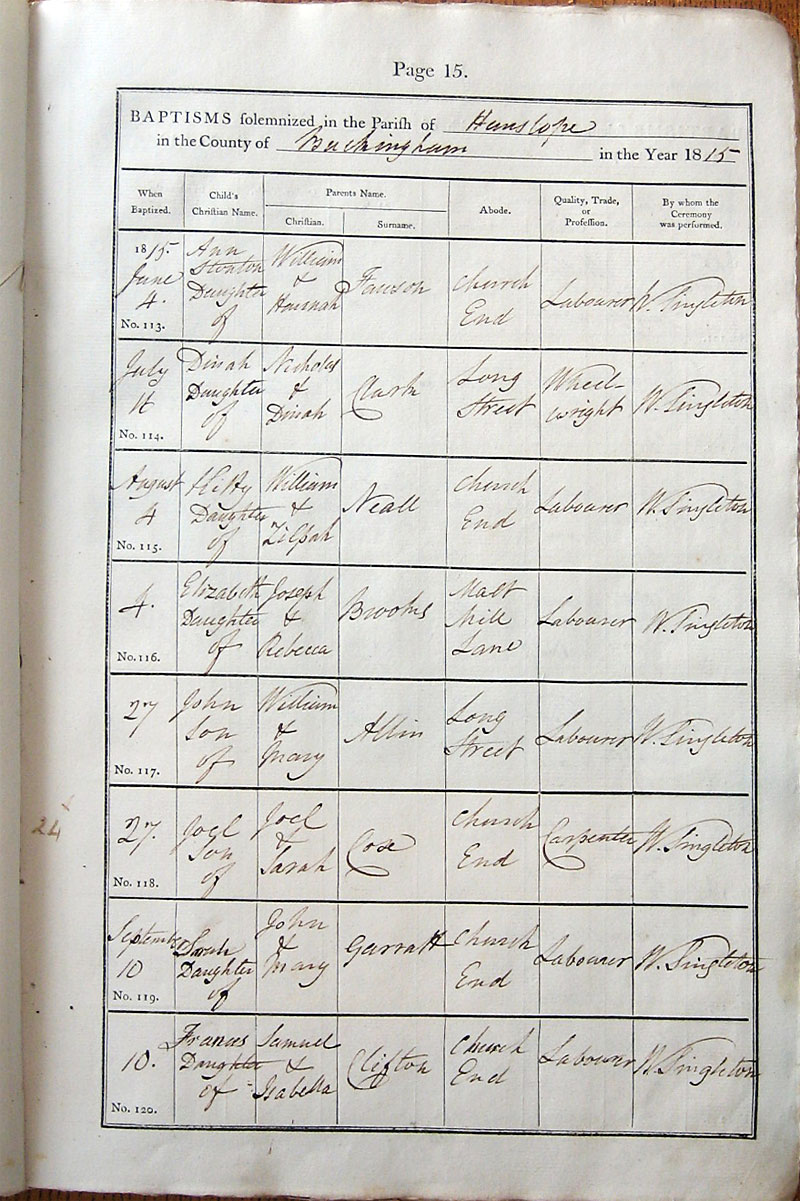 Page 15.
BAPTISMS solemnized in the Parish of Hanslope
in the County of Buckingham in the Year 1815
When Baptized. Child's Christian Name. Parents Name. Abode. Quality, Trade, or Profession. By whom the Ceremony was performed.
Christian. Surname.
1815. June 4. No. 113. Ann Stenton Daughter of William & Hannah Fawson Church End Labourer W. Singleton
July No. 114. Dinah Daughter of Nicholas & Dinah Clark Long Street Wheel-wright W. Singleton
August 4 No. 115. Kitty Daughter of William & Zilpah Neall Church End Labourer W. Singleton
4. No. 116. Elizabeth Daughter of Joseph & Rebecca Brooks Malt Mill Lane Labourer W. Singleton
27 No. 117. John Son of William & Mary Allin Long Street Labourer W. Singleton
24
27. No. 118. Joel Son of Joel & Sarah Cox Church End Carpenter W. Singleton
September 10 No. 119. Sarah Daughter of John & Mary Garratt Church End Labourer W. Singleton
10. No. 120. Frances Daughter of Samuel & Isabella Clifton Church End Labourer W. Singleton